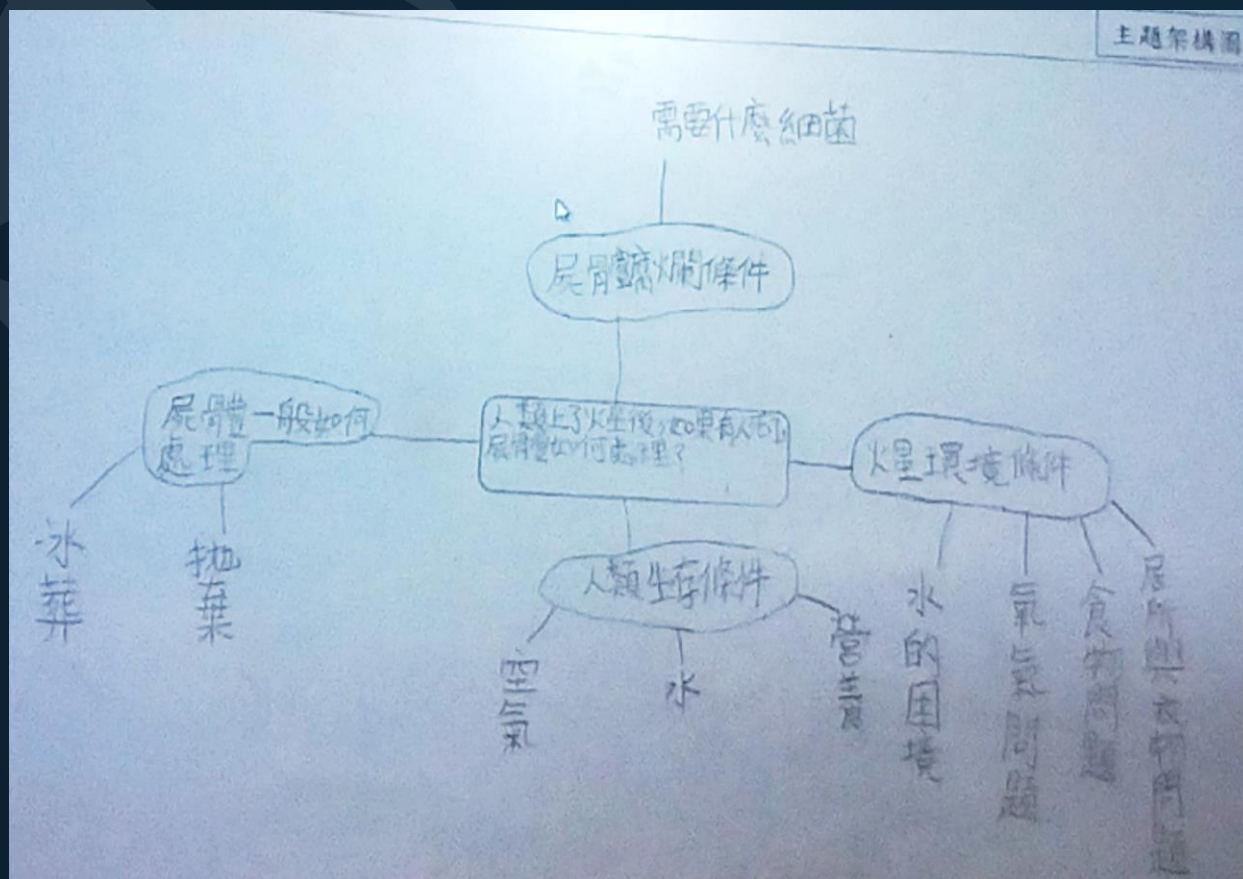 主題架構圖
需要什麼細菌
屍體腐爛條件
屍體一般如何
處理
人類上了火星後,如果有人死亡,
屍體如何處理?
火星環境條件
人類生存條件
冰葬
拋棄
空氣
水
營養
水的困境
氧氣問題
食物問題
居所與衣物問題